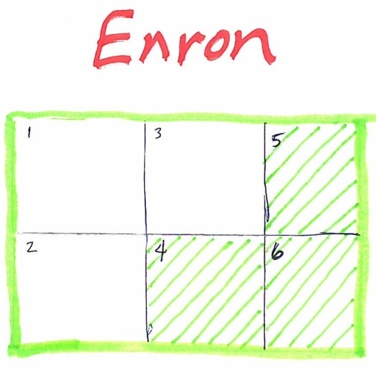 Enron
1 3 5
2 4 6